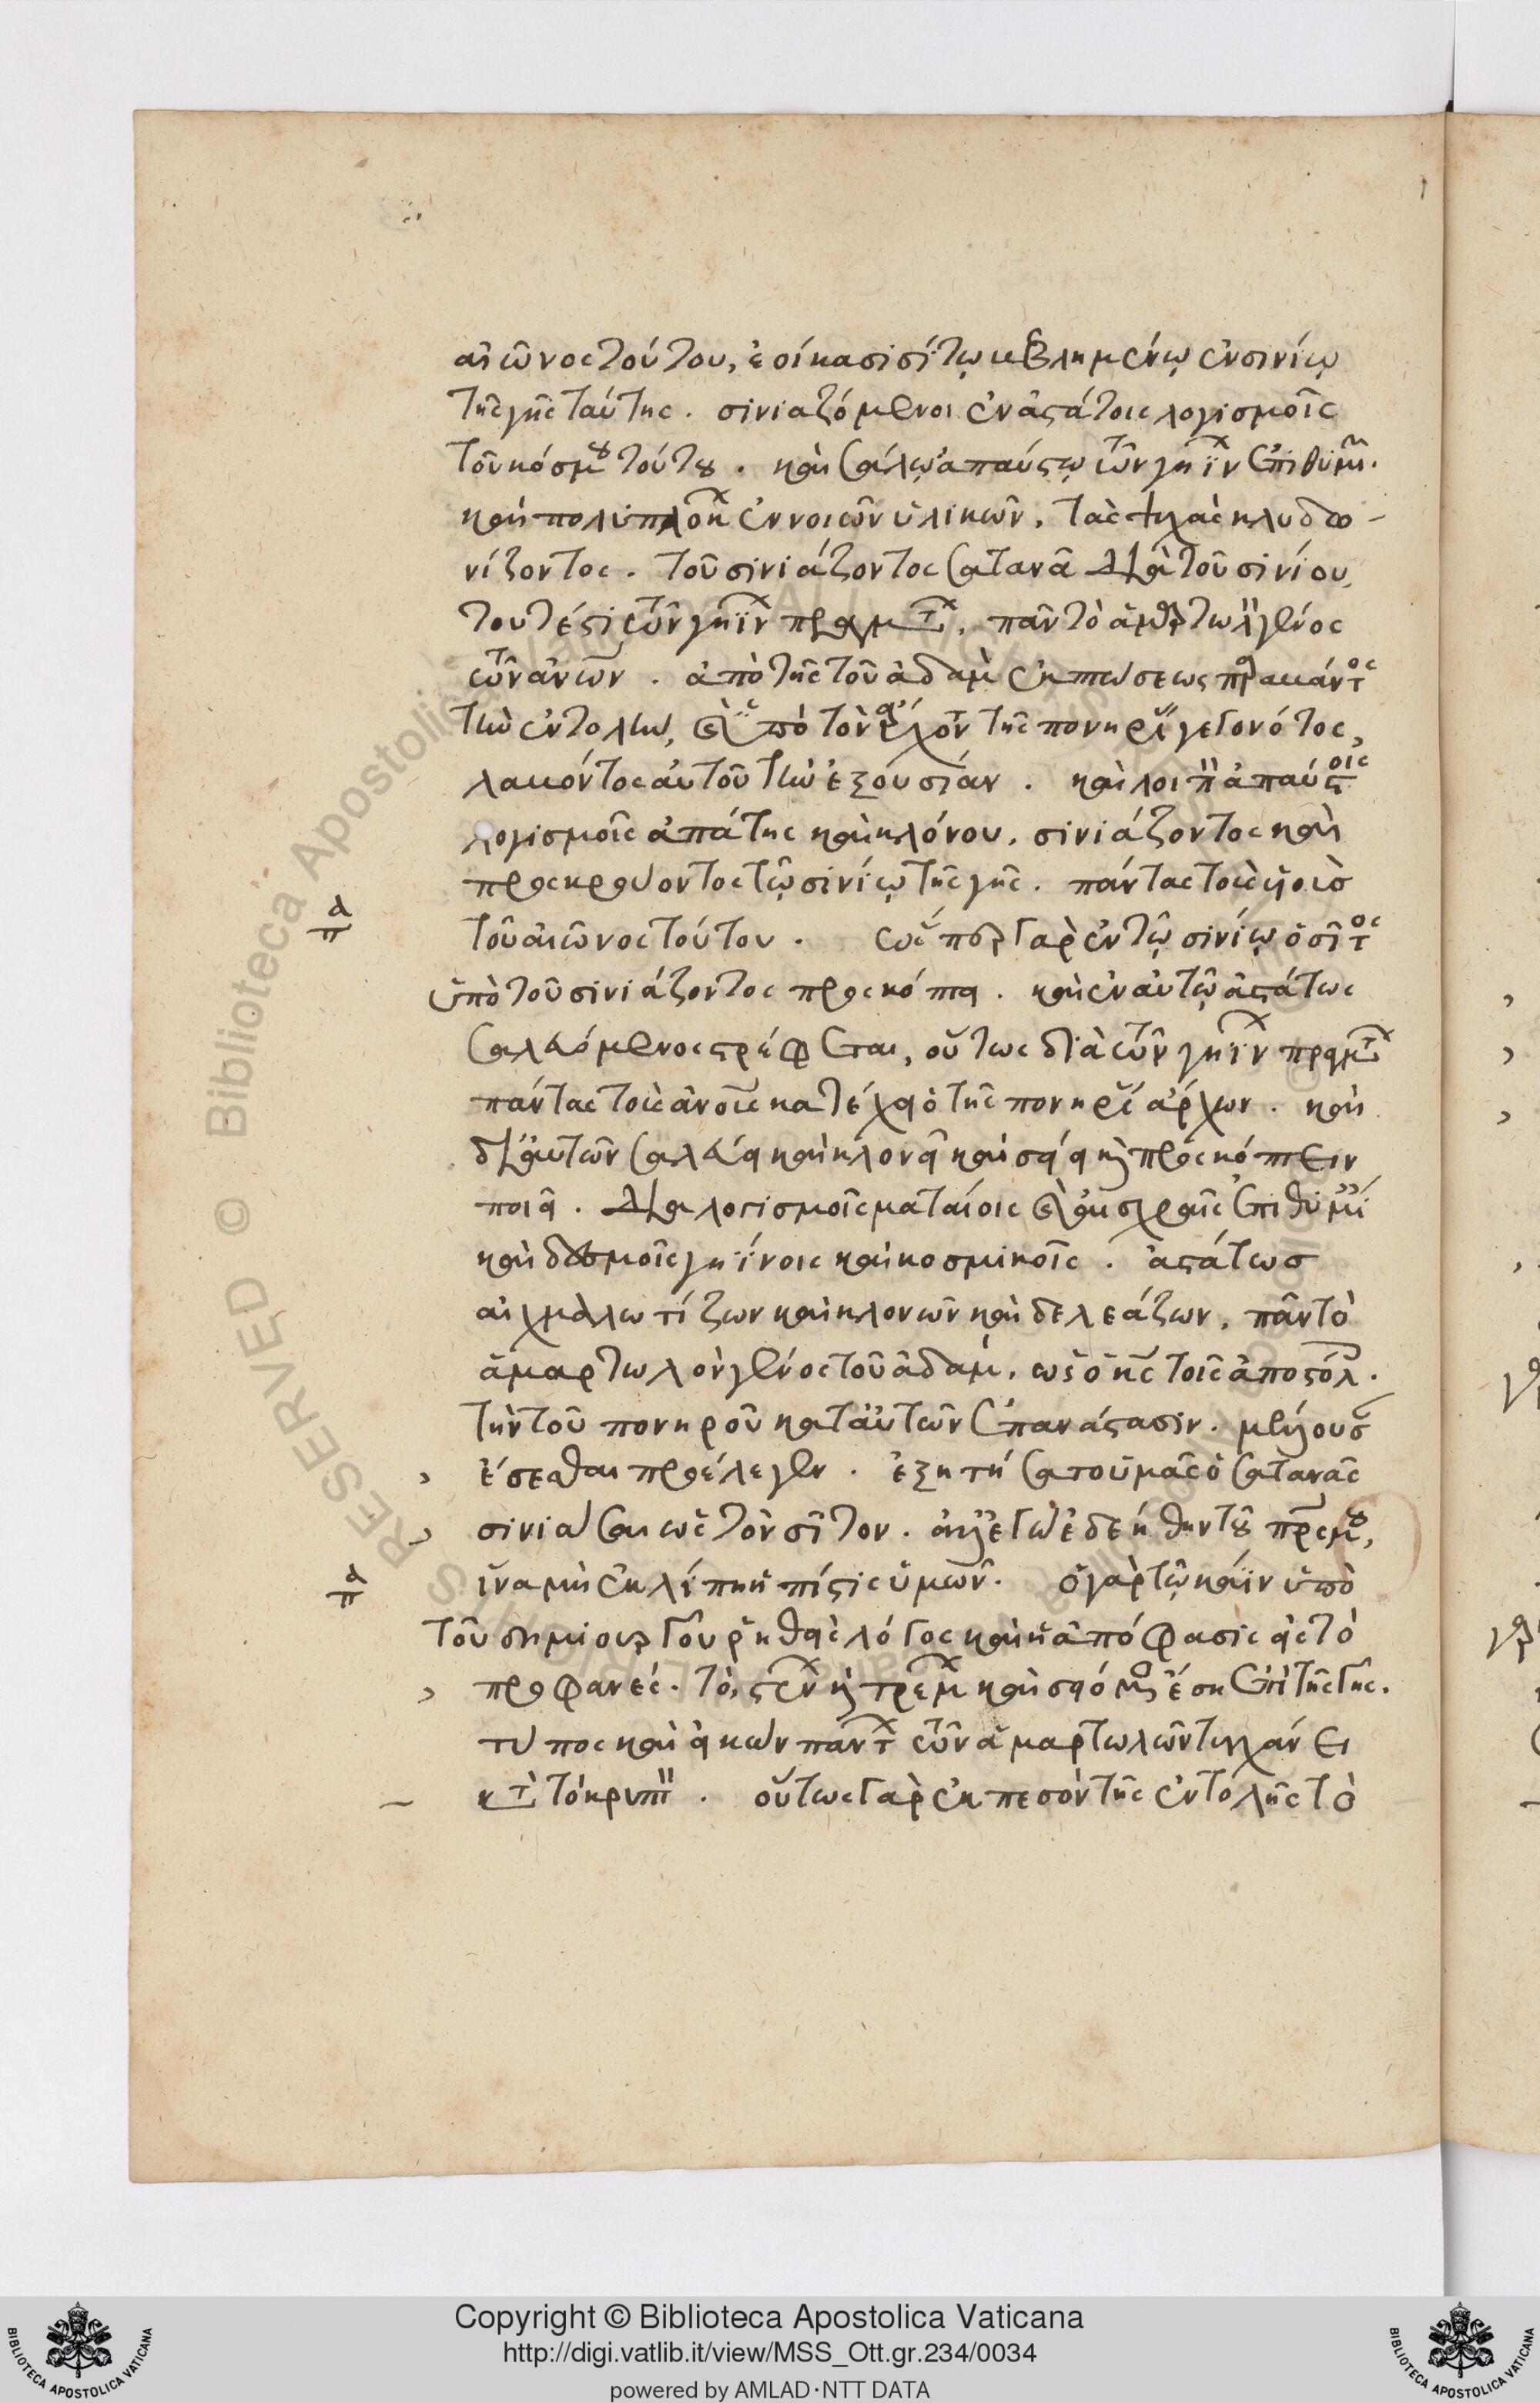 αἰῶνος τούτου, ἐοίκασι σίτῳ βεβλημένῳ ἐν σινίῳ
τῆς γῆς ταύτης. σινιαζόμενοι ἐν ἀστάτοις λογισμοῖς
τοῦ κόσμου τούτου. καὶ σάλῳ ἀπαύστῳ τῶν γηΐνων ἐπιθυμιῶν.
καὶ πολυπλόκων ἐννοιῶν ὑλικῶν. τὰς ψυχὰς κλυδω-
νίζοντος. τοῦ σινιάζοντος σατανᾶ διὰ τοῦ σινίου,
τουτέστι τῶν γηΐνων πραγμάτων, πᾶν τὸ ἁμαρτωλὸν γένος
τῶν ἀνων. ἀπὸ τῆς τοῦ ἀδαμ ἐκπτώσεως παραβάντος
τὴν ἐντολὴν, καὶ ὑπὸ τὸν ἄρχοντα τῆς πονηρίας γεγονότος,
λαβόντος αὐτοῦ τὴν ἐξουσίαν. καὶ λοιπὸν ἀπαύστοις
λογισμοῖς ἀπάτης καὶ κλόνου, σινιάζοντος καὶ
προσκρούοντος τῷ σινίῳ τῆς γῆς. πάντας τοὺς υἱοὺσ
τοῦ αἰῶνος τούτου. ὥσπερ γὰρ ἐν τῷ σινίῳ ὁ σῖτος
ὑπὸ τοῦ σινιάζοντος προσκόπτει. καὶ ἐν αὐτῷ ἀστάτως
σαλευόμενος στρέφεται, οὕτως διὰ τῶν γηΐνων πραγμάτων
πάντας τοὺς ἀνους κατέχει ὁ τῆς πονηρίας ἄρχων. καὶ
δι' αὐτῶν σαλεύει καὶ κλονεῖ καὶ σείει καὶ προσκόπτειν
ποιεῖ. διὰ λογισμοῖς ματαίοις καὶ αἰσχραῖς ἐπιθυμίαις
καὶ δεσμοῖς γηΐνοις καὶ κοσμικοῖς. ἀστάτωσ
αἰχμαλωτίζων καὶ κλονῶν καὶ δελεάζων. πᾶν τὸ
ἁμαρτωλὸν γένος τοῦ ἀδαμ. ὡς ὁ κς τοῖς ἀποστόλοις.
τὴν τοῦ πονηροῦ κατ' αὐτῶν ἐπανάστασιν. μέλλουσαν
ἔσεσθαι προέλεγεν. ἐξητήσατο ὑμᾶς ὁ σατανᾶς
σινιάσαι ὡς τὸν σῖτον. ἀλλ' ἐγὼ ἐδεήθην τοῦ πρς μου,
ἵνα μὴ ἐκλίπῃ ἡ πίστις ὑμῶν. ὁ γὰρ τῷ κάϊν ὑπὸ
τοῦ δημιουργοῦ ῥηθεὶς λόγος καὶ ἡ ἀπόφασις εἰς τὸ
προφανές. τὸ, στένων καὶ τρέμων καὶ σειόμενος ἔσῃ ἐπὶ τῆς γῆς.
τύπος καὶ εἰκὼν πάντων τῶν ἁμαρτωλῶν τυγχάνει
κατὰ τὸ κρυπτὸν. οὕτως γὰρ ἐκπεσὸν τῆς ἐντολῆς τὸ